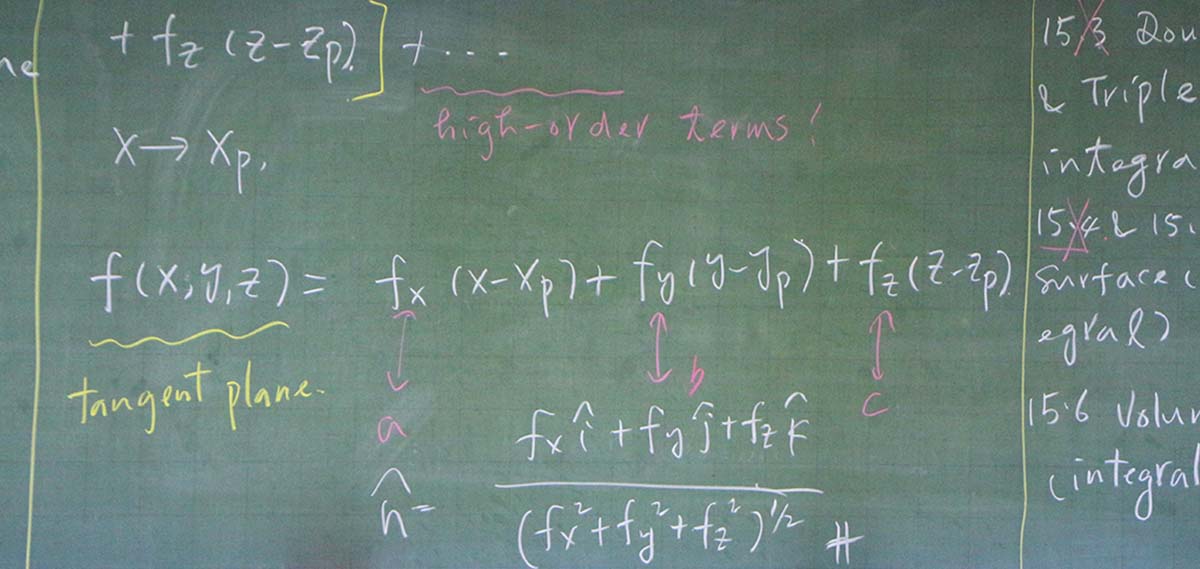 + f_z (z-z_p)] + ...
high-order terms!
x → x_p,
f(x,y,z) = f_x (x-x_p) + f_y (y-y_p) + f_z (z-z_p)
tangent plane.
a
b
c
n̂ = (f_x î + f_y ĵ + f_z k̂) / (f_x² + f_y² + f_z²)^{1/2} #
15.3 Dou
& Triple
integra
15.4 & 15.
Surface (
egral)
15.6 Volu
(integral